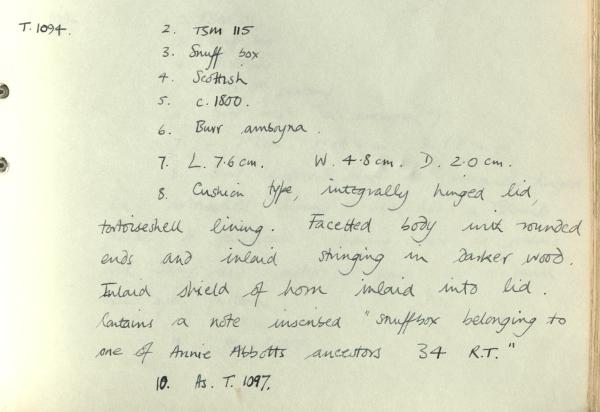 T. 1094. 2. TSM 115
3. Snuff box
4. Scottish
5. c. 1800.
6. Burr amboyna.
7. L. 7.6 cm. W. 4.8 cm. D. 2.0 cm.
8. Cushion type, integrally hinged lid,
tortoiseshell lining. Facetted body with rounded
ends and inlaid stringing in darker wood.
Inlaid shield of horn inlaid into lid.
Contains a note inscribed "snuffbox belonging to
one of Annie Abbotts ancestors 34 R.T."
10. As. T. 1097.